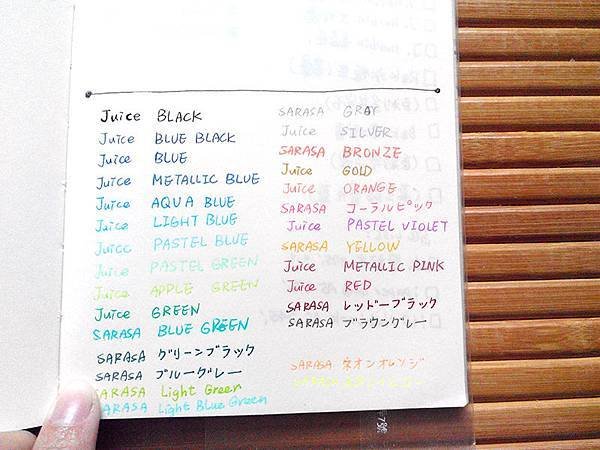 Juice BLACK
Juice BLUE BLACK
Juice BLUE
Juice METALLIC BLUE
Juice AQUA BLUE
Juice LIGHT BLUE
Juice PASTEL BLUE
Juice PASTEL GREEN
Juice APPLE GREEN
Juice GREEN
SARASA BLUE GREEN
SARASA グリーンブラック
SARASA ブルーグレー
SARASA Light Green
SARASA Light Blue Green
SARASA GRAY
Juice SILVER
SARASA BRONZE
Juice GOLD
Juice ORANGE
SARASA コーラルピック
Juice PASTEL VIOLET
SARASA YELLOW
Juice METALLIC PINK
Juice RED
SARASA レッドーブラック
SARASA ブラウングレー
SARASA ネオンオレンジ
SARASA